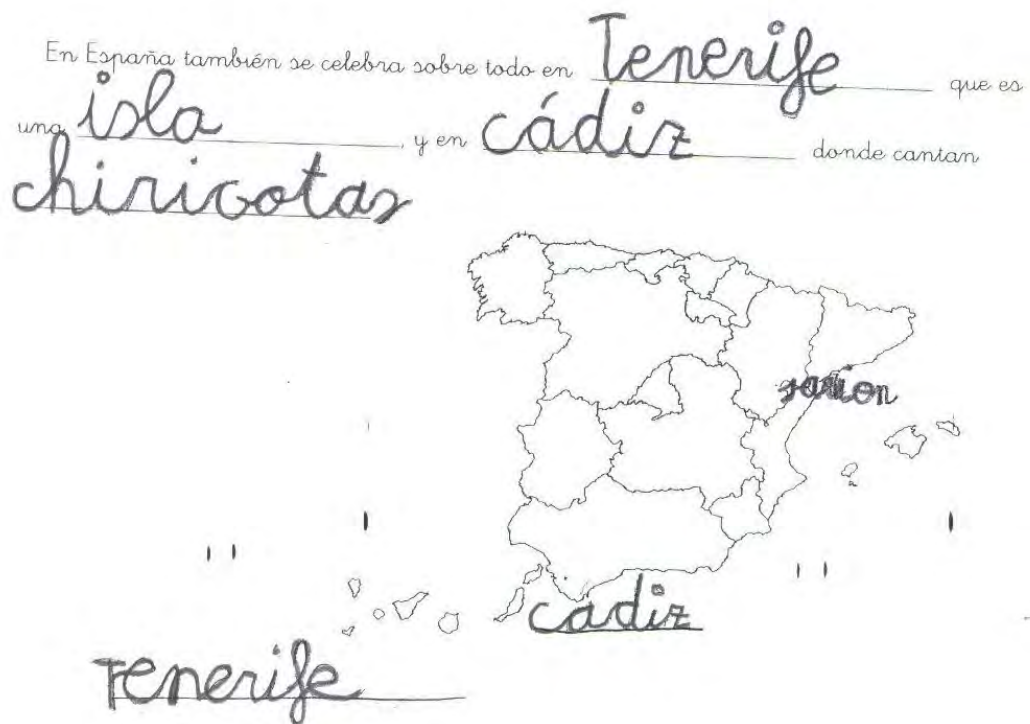 En España también se celebra sobre todo en Tenerife que es
una isla, y en cádiz donde cantan
chirigotas
sarion
cadiz
Tenerife